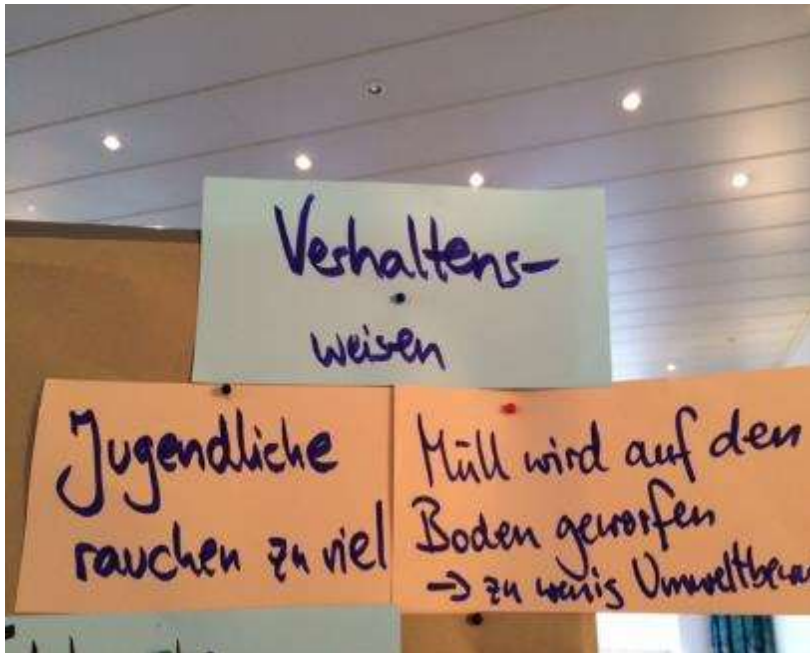 Verhaltens-
weisen
Jugendliche
rauchen zu viel
Müll wird auf den
Boden geworfen
→ zu wenig Umweltbewu